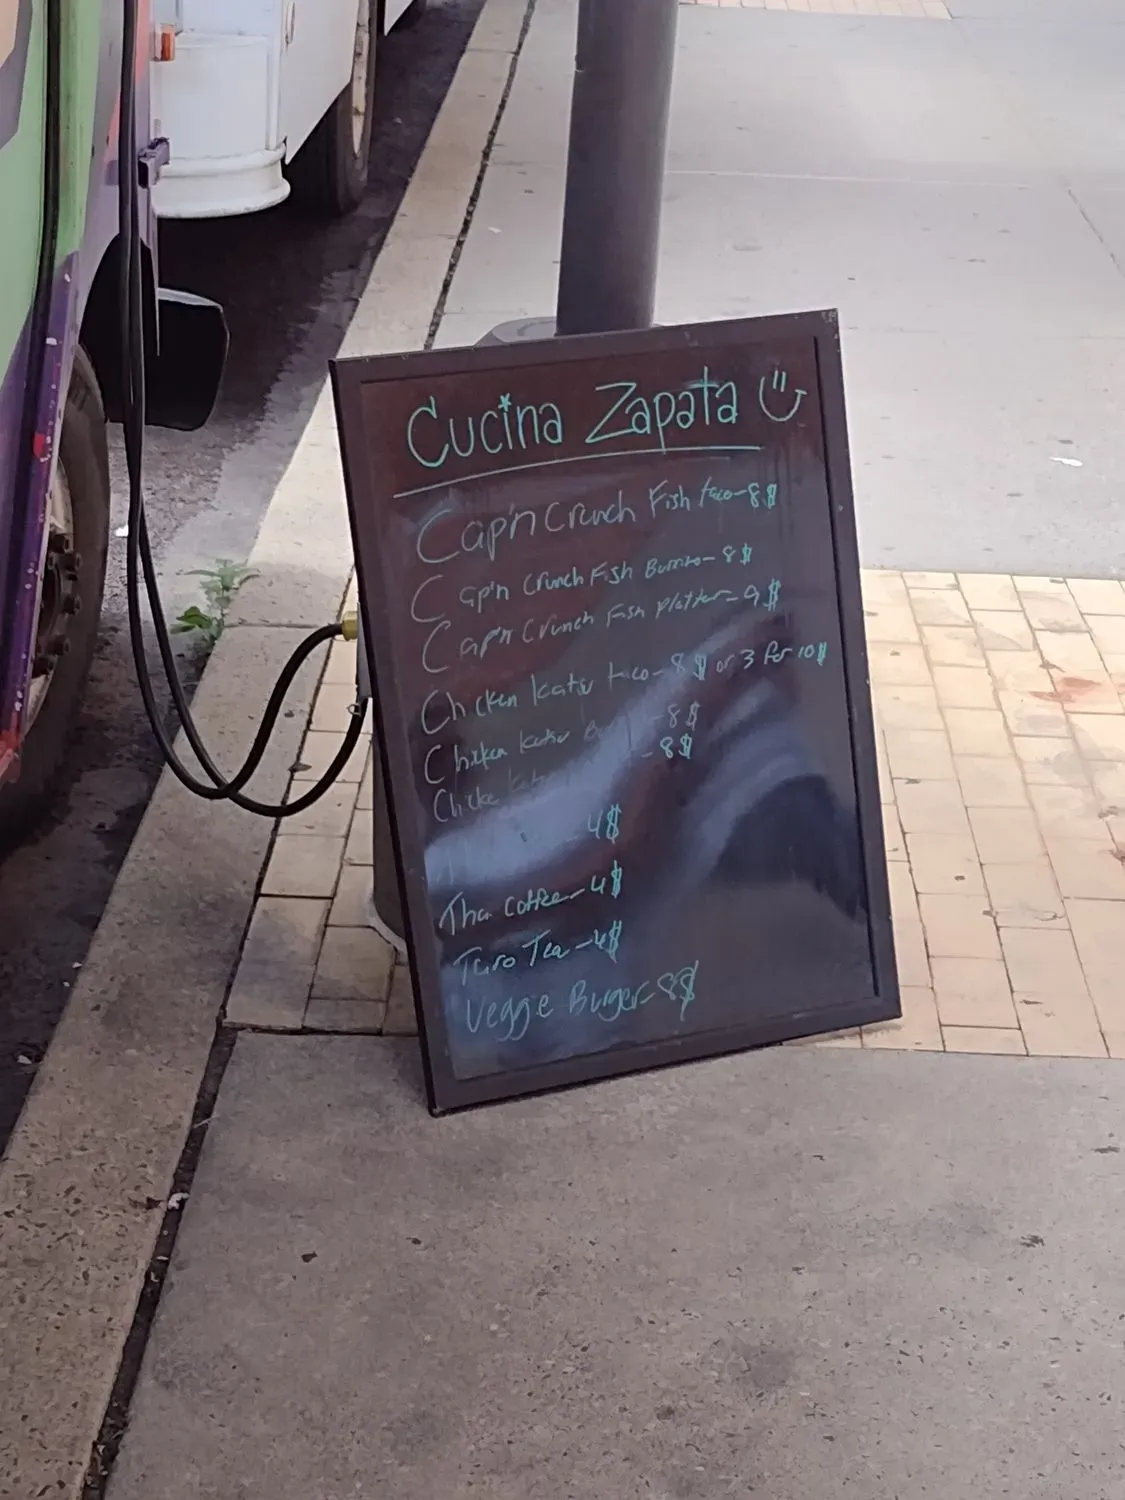 Cucina Zapata
Cap'n Crunch Fish taco - 8$
Cap'n Crunch Fish Burrito - 8$
Cap'n Crunch Fish platter - 9$
Chicken katsu taco - 8$ or 3 for 10$
Chicken katsu - 8$
Chicke - 8$
4$
Thai coffee - 4$
Taro Tea - 4$
Veggie Burger - 8$